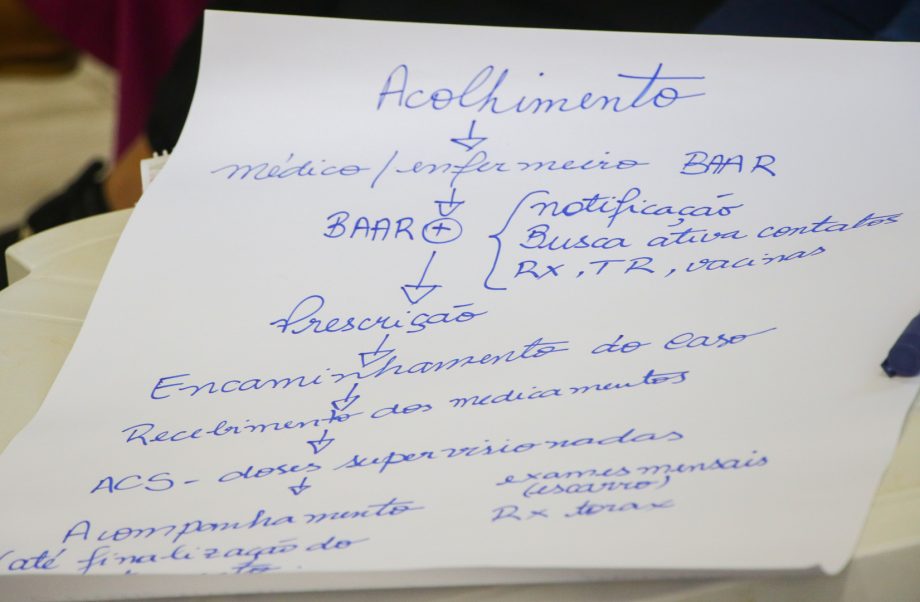 Acolhimento
médico / enfermeiro BAAR
BAAR + notificação
Busca ativa contatos
RX, TR, vacinas
Prescrição
Encaminhamento do caso
Recebimento dos medicamentos
ACS - doses supervisionadas
Acompanhamento exames mensais
(escarro)
Rx torax
(até finalização do